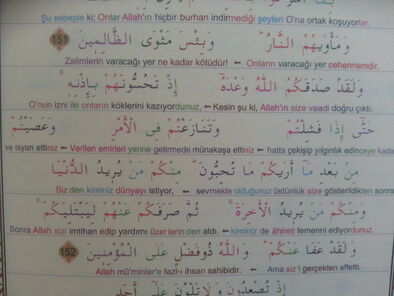 بِمَا
Şu sebeple ki; Onlar Allah'ın hiçbir burhan indirmediği şeyleri O'na ortak koşuyorlar.
وَمَأْوٰيهُمُ النَّارُ وَبِئْسَ مَثْوَى الظَّالِمِينَ 151
Zalimlerin varacağı yer ne kadar kötüdür! ← Onların varacağı yer cehennemdir.
وَلَقَدْ صَدَقَكُمُ اللّٰهُ وَعْدَهُٓ اِذْ تَحُسُّونَهُمْ بِاِذْنِهِ
O'nun izni ile onların köklerini kazıyordunuz. ← Kesin şu ki, Allah'ın size vaadi doğru çıktı.
حَتّٰٓى اِذَا فَشِلْتُمْ وَتَنَازَعْتُمْ فِى الْاَمْرِ وَعَصَيْتُمْ
ve isyan ettiniz ← Verilen emirleri yerine getirmede münakaşa ettiniz ← hatta çekişip yılgınlık edinceye kadar
مِنْ بَعْدِ مَٓا اَرٰيكُمْ مَا تُحِبُّونَ مِنْكُمْ مَنْ يُرِيدُ الدُّنْيَا
Siz den kiminiz dünyayı istiyor, ← sevmekte olduğunuz üstünlük size gösterildikten sonra
وَمِنْكُمْ مَنْ يُرِيدُ الْاٰخِرَةَ ثُمَّ صَرَفَكُمْ عَنْهُمْ لِيَبْتَلِيَكُمْ
Sonra Allah sizi imtihan edip yardımı üzerlerin den aldı. ← kiminiz de âhireti temenni ediyordunuz.
وَلَقَدْ عَفَا عَنْكُمْ وَاللّٰهُ ذُو فَضْلٍ عَلَى الْمُؤْمِنِينَ 152
Allah mü'minler'e fazl-ı ihsan sahibidir. ← Ama siz'i gerçekten affetti.
اِذْ تُصْعِدُونَ وَلَا تَلْوُنَ عَلٰٓى اَحَدٍ